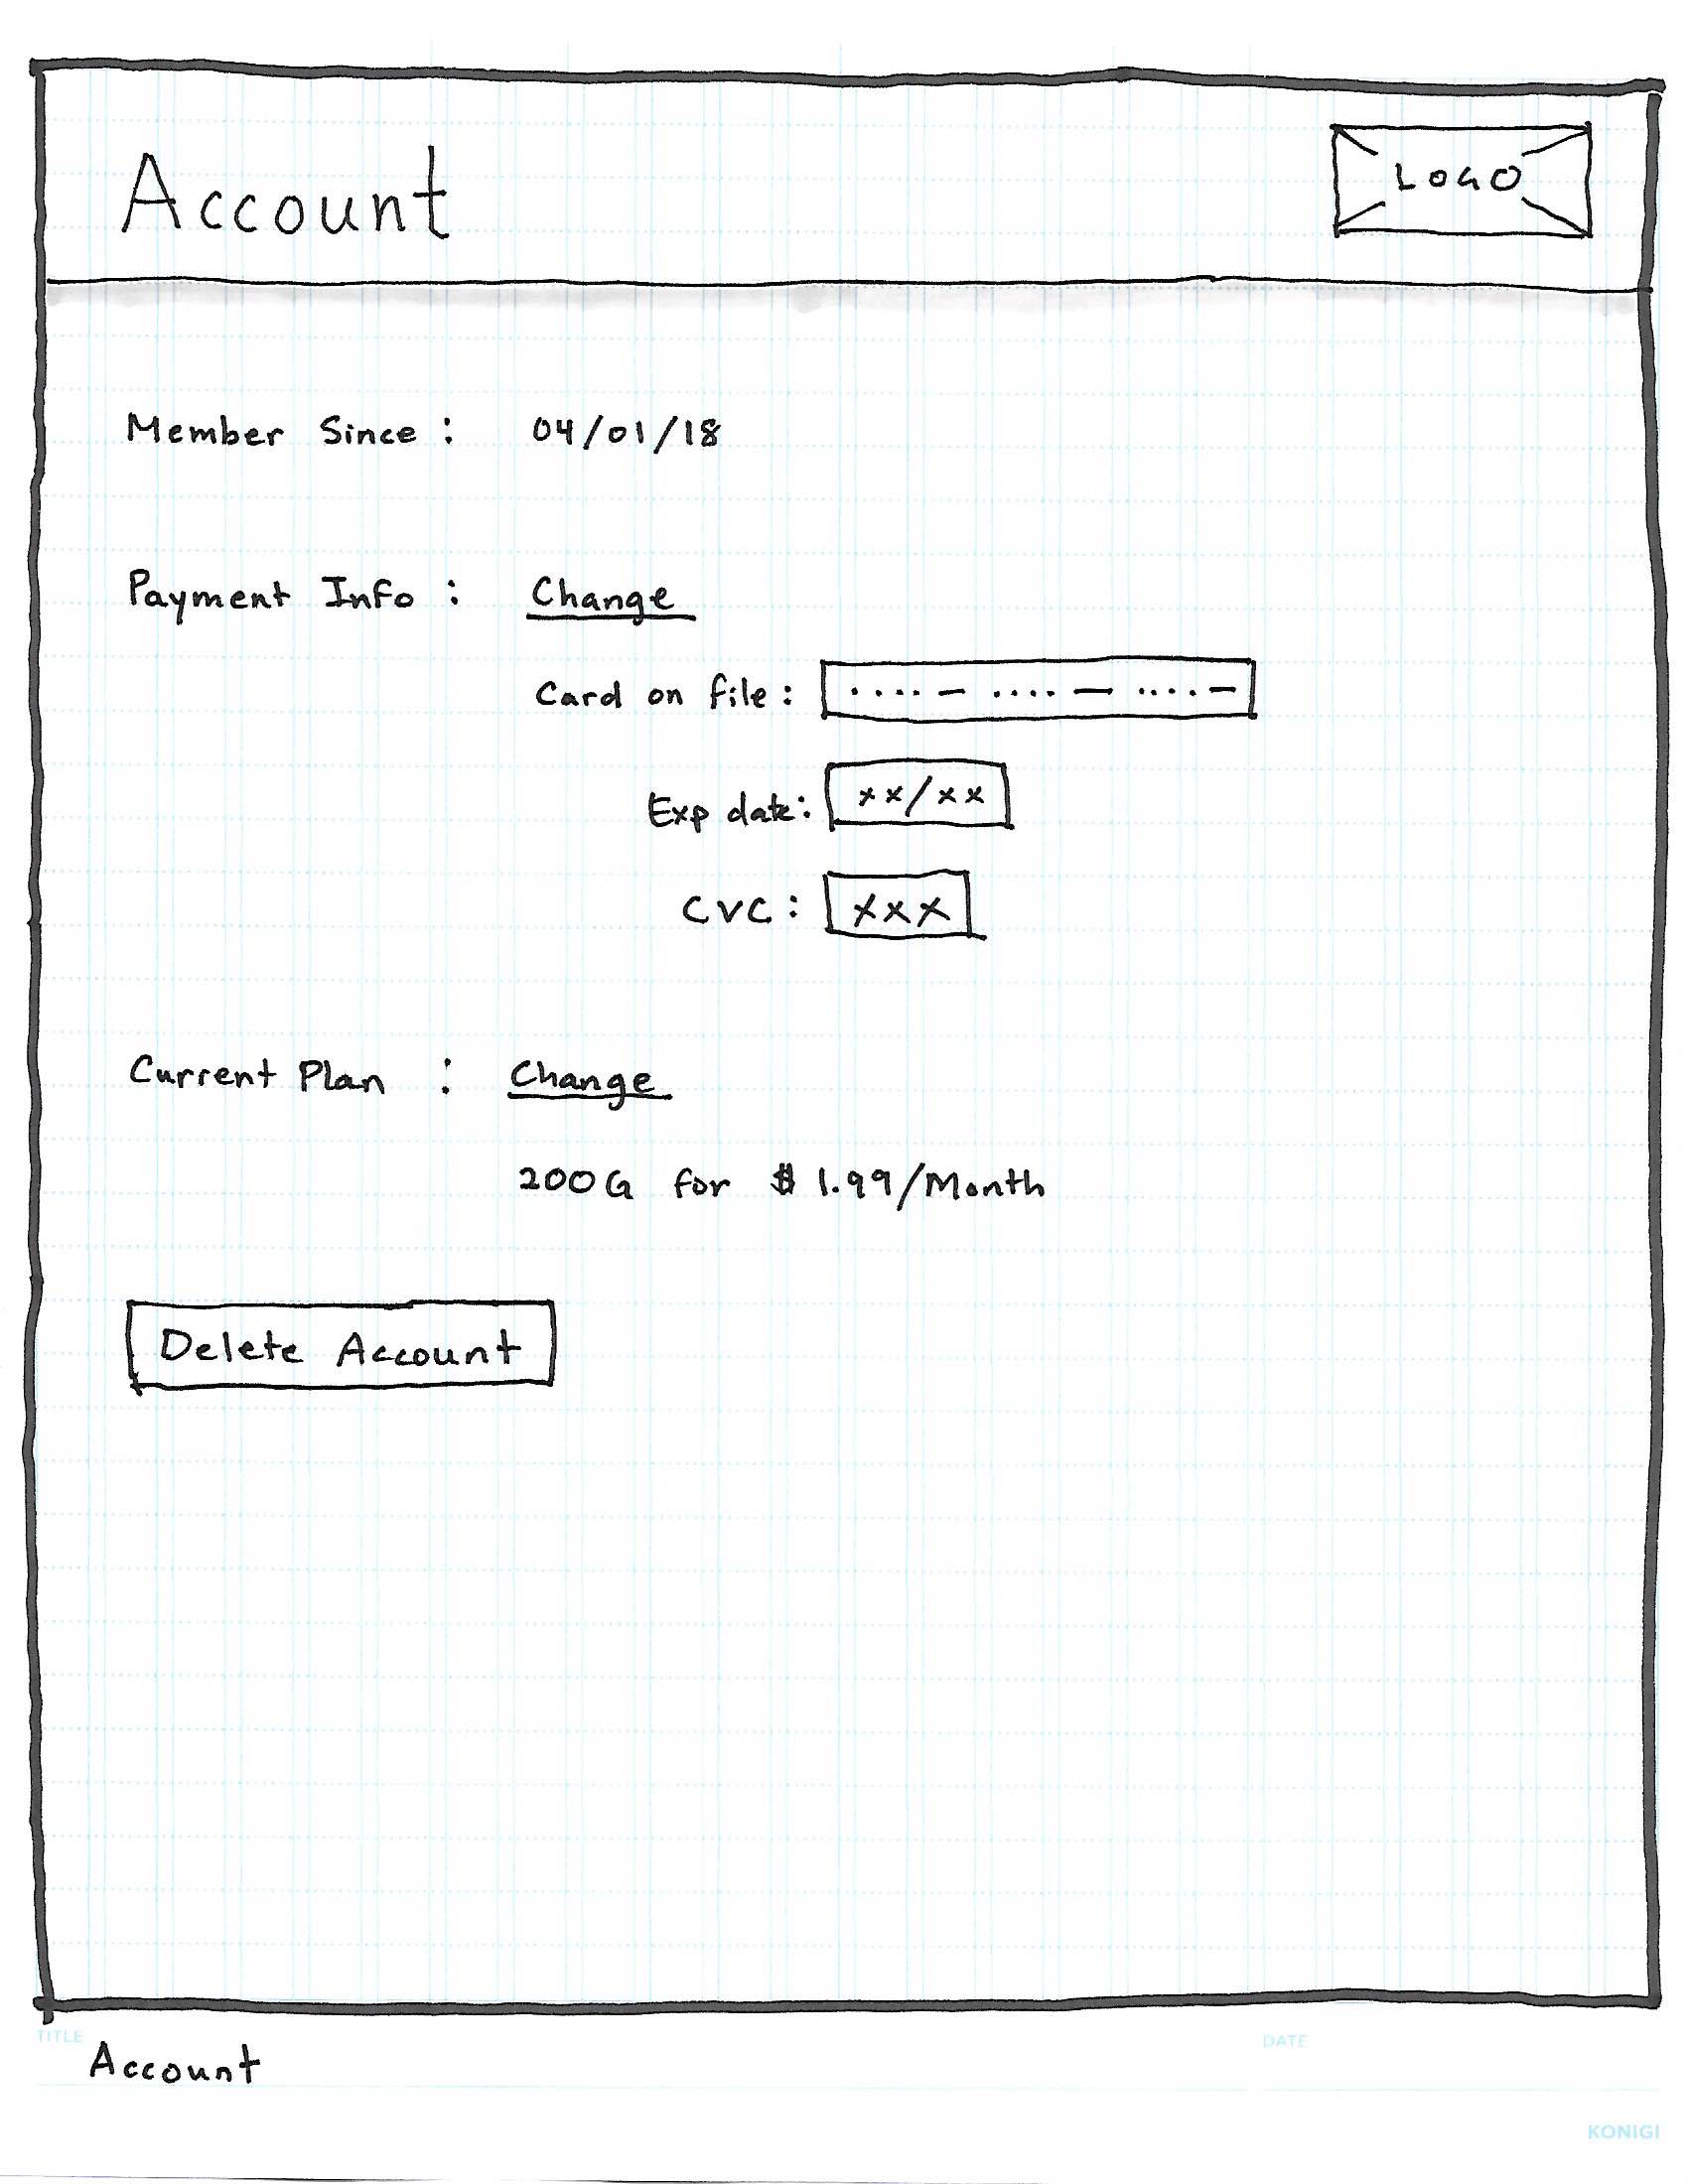 Account
LOGO
Member Since : 04/01/18
Payment Info : Change
Card on file : .... — .... — .... —
Exp date: xx/xx
CVC : xxx
Current Plan : Change
200G for $1.99/Month
Delete Account
TITLE
DATE
Account
KONIGI